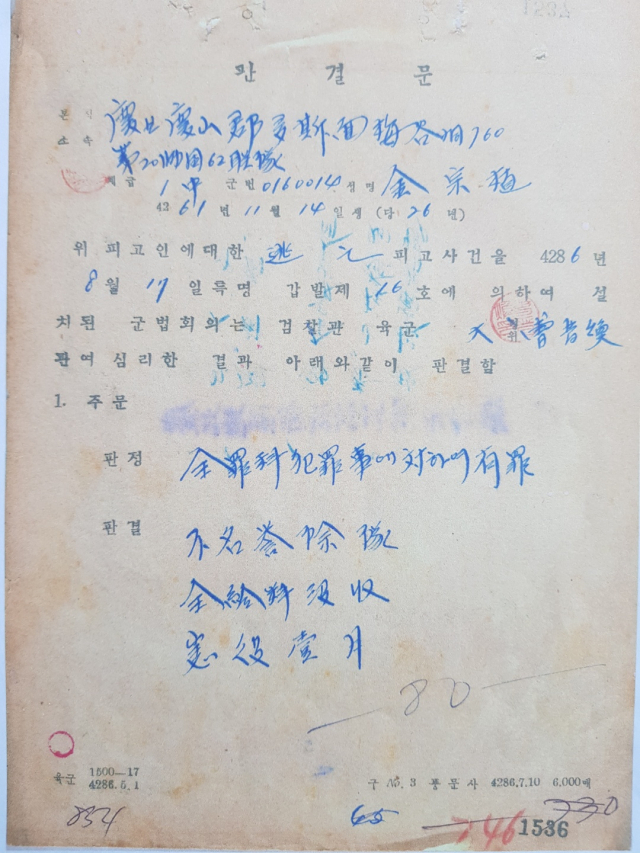 1232
판 결 문
본적 慶北慶山郡 面 谷洞 760
소속 第20師団62聯隊
계급 1中 군번 0160014 성명 金宗
42 61 년 11 월 14 일생 (당 26 년)
위 피고인에대한 逃亡 피고사건을 4286년
8월 17 일륙명 갑발제 66 호에 의하여 설
치된 군법회의는 검찰관 육군 大 위 曹
관여 심리한 결과 아래와같이 판결함
1. 주문
판정 全罪科犯罪事에対하여有罪
판결 不名誉除隊
全給料没收
懲役壹月
80
육군 1500—17
4286.5.1
구 No. 3 풍문사 4286.7.10 6,000매
834
65
746
1536